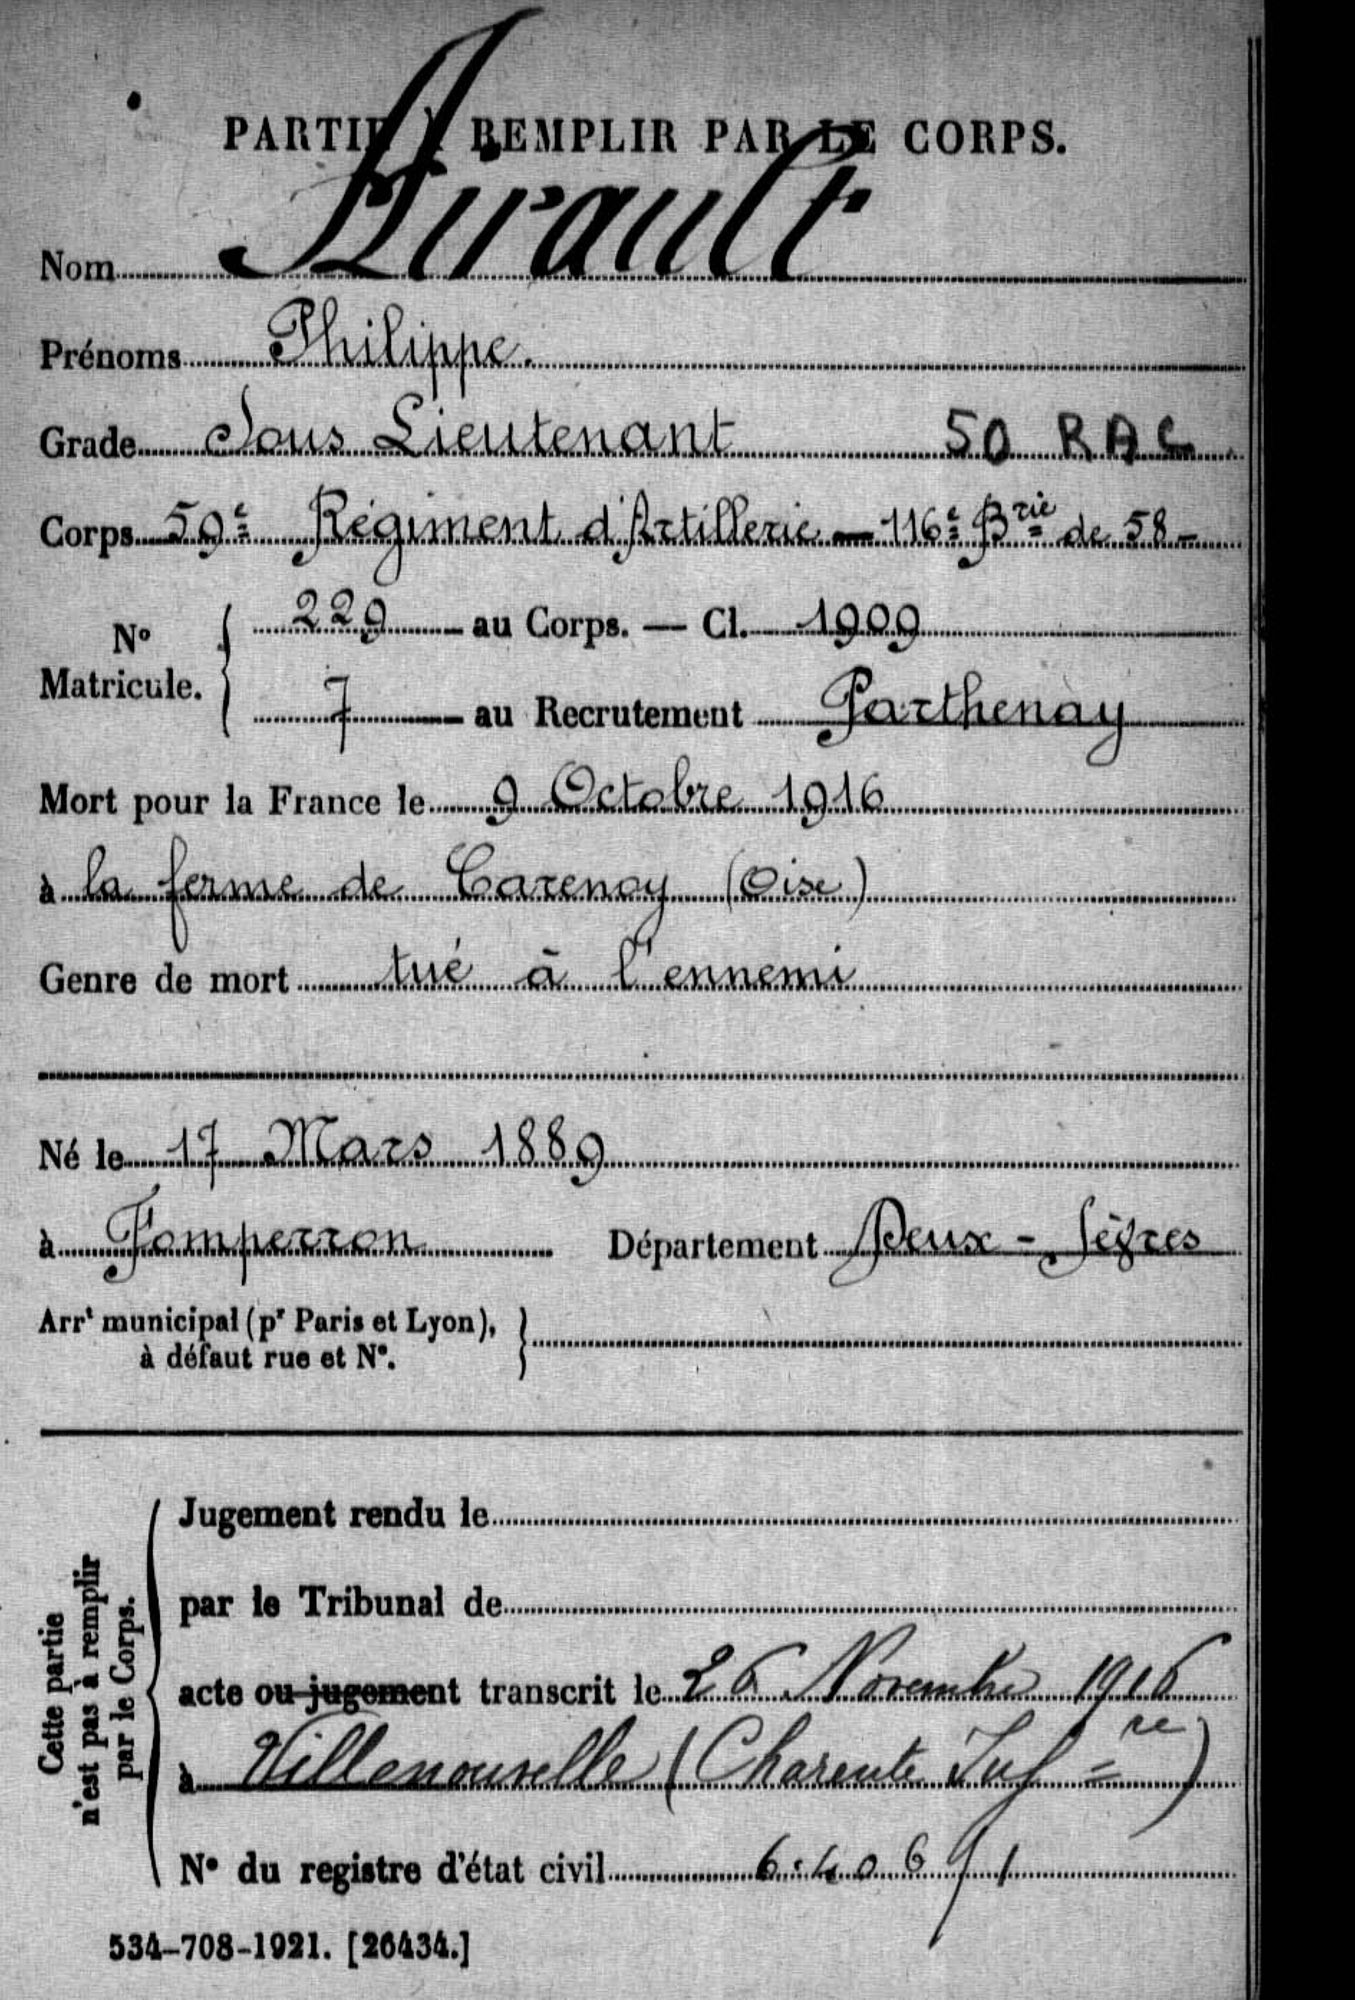 PARTIE À REMPLIR PAR LE CORPS.
Nom Airault
Prénoms Philippe.
Grade Sous Lieutenant 50 RAC
Corps 50e Régiment d'Artillerie - 116e Brie de 58 -
No Matricule. { 229 au Corps. — Cl. 1909
7 au Recrutement Parthenay
Mort pour la France le 9 Octobre 1916
à la ferme de Carenoy (Oise)
Genre de mort tué à l'ennemi
Né le 17 Mars 1889
à Fomperron Département Deux-Sèvres
Arrt municipal (pr Paris et Lyon), à défaut rue et No. }
Cette partie n'est pas à remplir par le Corps.
Jugement rendu le
par le Tribunal de
acte ou jugement transcrit le 26 Novembre 1916
à Villenouvelle (Charente Infre)
No du registre d'état civil
534-708-1921. [26434.]